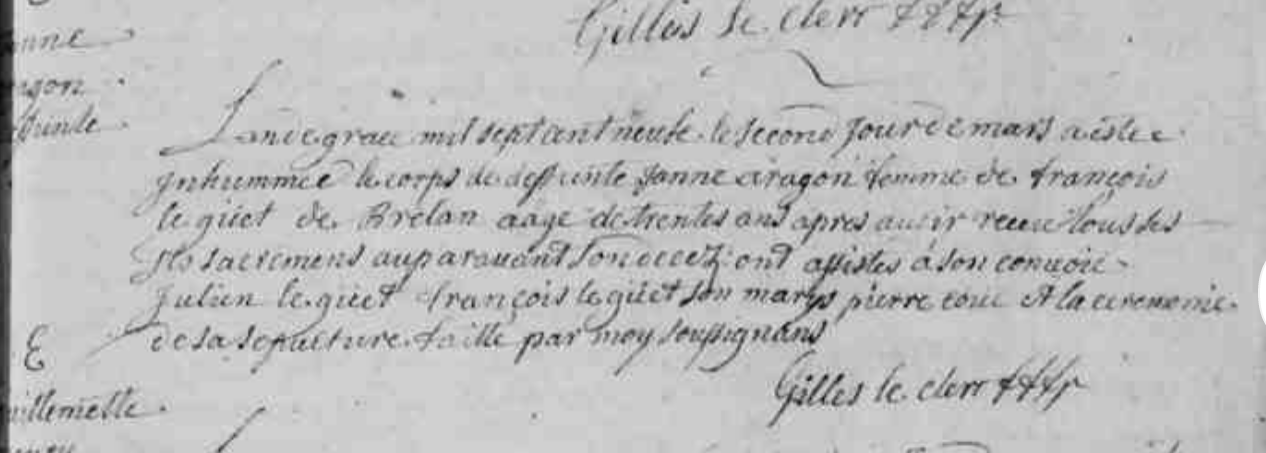 Gilles le clerr
anne
agon
funte
Lan de grace mil sept cent neufe le second jour de mars a este
Jnhummée le corps de deffunte Janne aragon femme de françois
le guet de Brelan aagé de trentes ans apres auoir receu tous ses
sacremens auparauant son decez ont assistés a son conuoie
Julien le guet françois le guet son marys pierre et la ceremonie
de sa sepulture faitte par moy soussignans
Gilles le clerr
E
uillemette